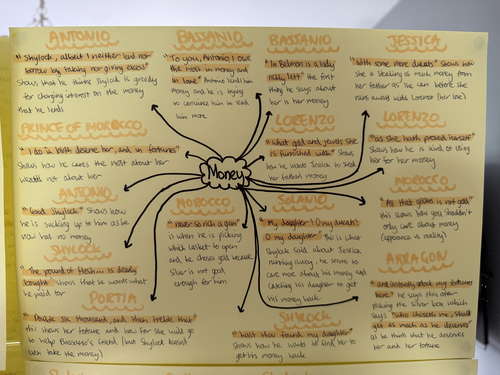 ANTONIO
"Shylock, albeit I neither lend nor
borrow by taking nor giving excess"
shows that he thinks Shylock is greedy
for charging interest on the money
that he lends
BASSANIO
"To you, Antonio I owe
the most in money and
in love" Antonio lends him
money and he is trying
to convince him to lend
him more
BASSANIO
"In Belmon is a lady
richly left" the first
thing he says about
her is her money
JESSICA
"With some more ducats" shows how
she is stealing as much money from
her father as she can before she
runs away with Lorenzo (her love)
PRINCE OF MOROCCO
"I do in birth deserve her, and in fortunes"
Shows how he cares the most about her
wealth not about her
LORENZO
"what gold and jewels she
is furnished with" Shows
how he wants Jessica to steal
her fathers money
LORENZO
"as she hath proved herself"
Shows how he is kind of using
her for her money
Money
ANTONIO
"Good Shylock" Shows how
he is sucking up to him as he
now has no money
MOROCCO
"never so rich a gem"
is when he is picking
which casket to open
and he chooses gold because
silver is not good
enough for him
SOLANIO
"My daughter! O my ducats!
O my daughter!" this is what
Shylock said about Jessica
running away, he seems to
care more about his money and
catching his daughter to get
his money back
MOROCCO
"All that glisters is not gold"
this shows how you shouldn't
only care about money
(appearance vs reality)
SHYLOCK
"The pound of flesh... is dearly
bought" shows that he wants what
he paid for
ARRAGON
"and instantly unlock my fortunes
here" he says this after
picking the silver box which
says "who chooseth me, should
get as much as he deserves"
as he think that he deserves
her and her fortune
PORTIA
"Double six thousand, and then treble that"
this shows her fortune and how far she will go
to help Bassanio's friend (but Shylock doesn't
even take the money)
SHYLOCK
"hast thou found my daughter"
shows how he wants to find her to
get his money back